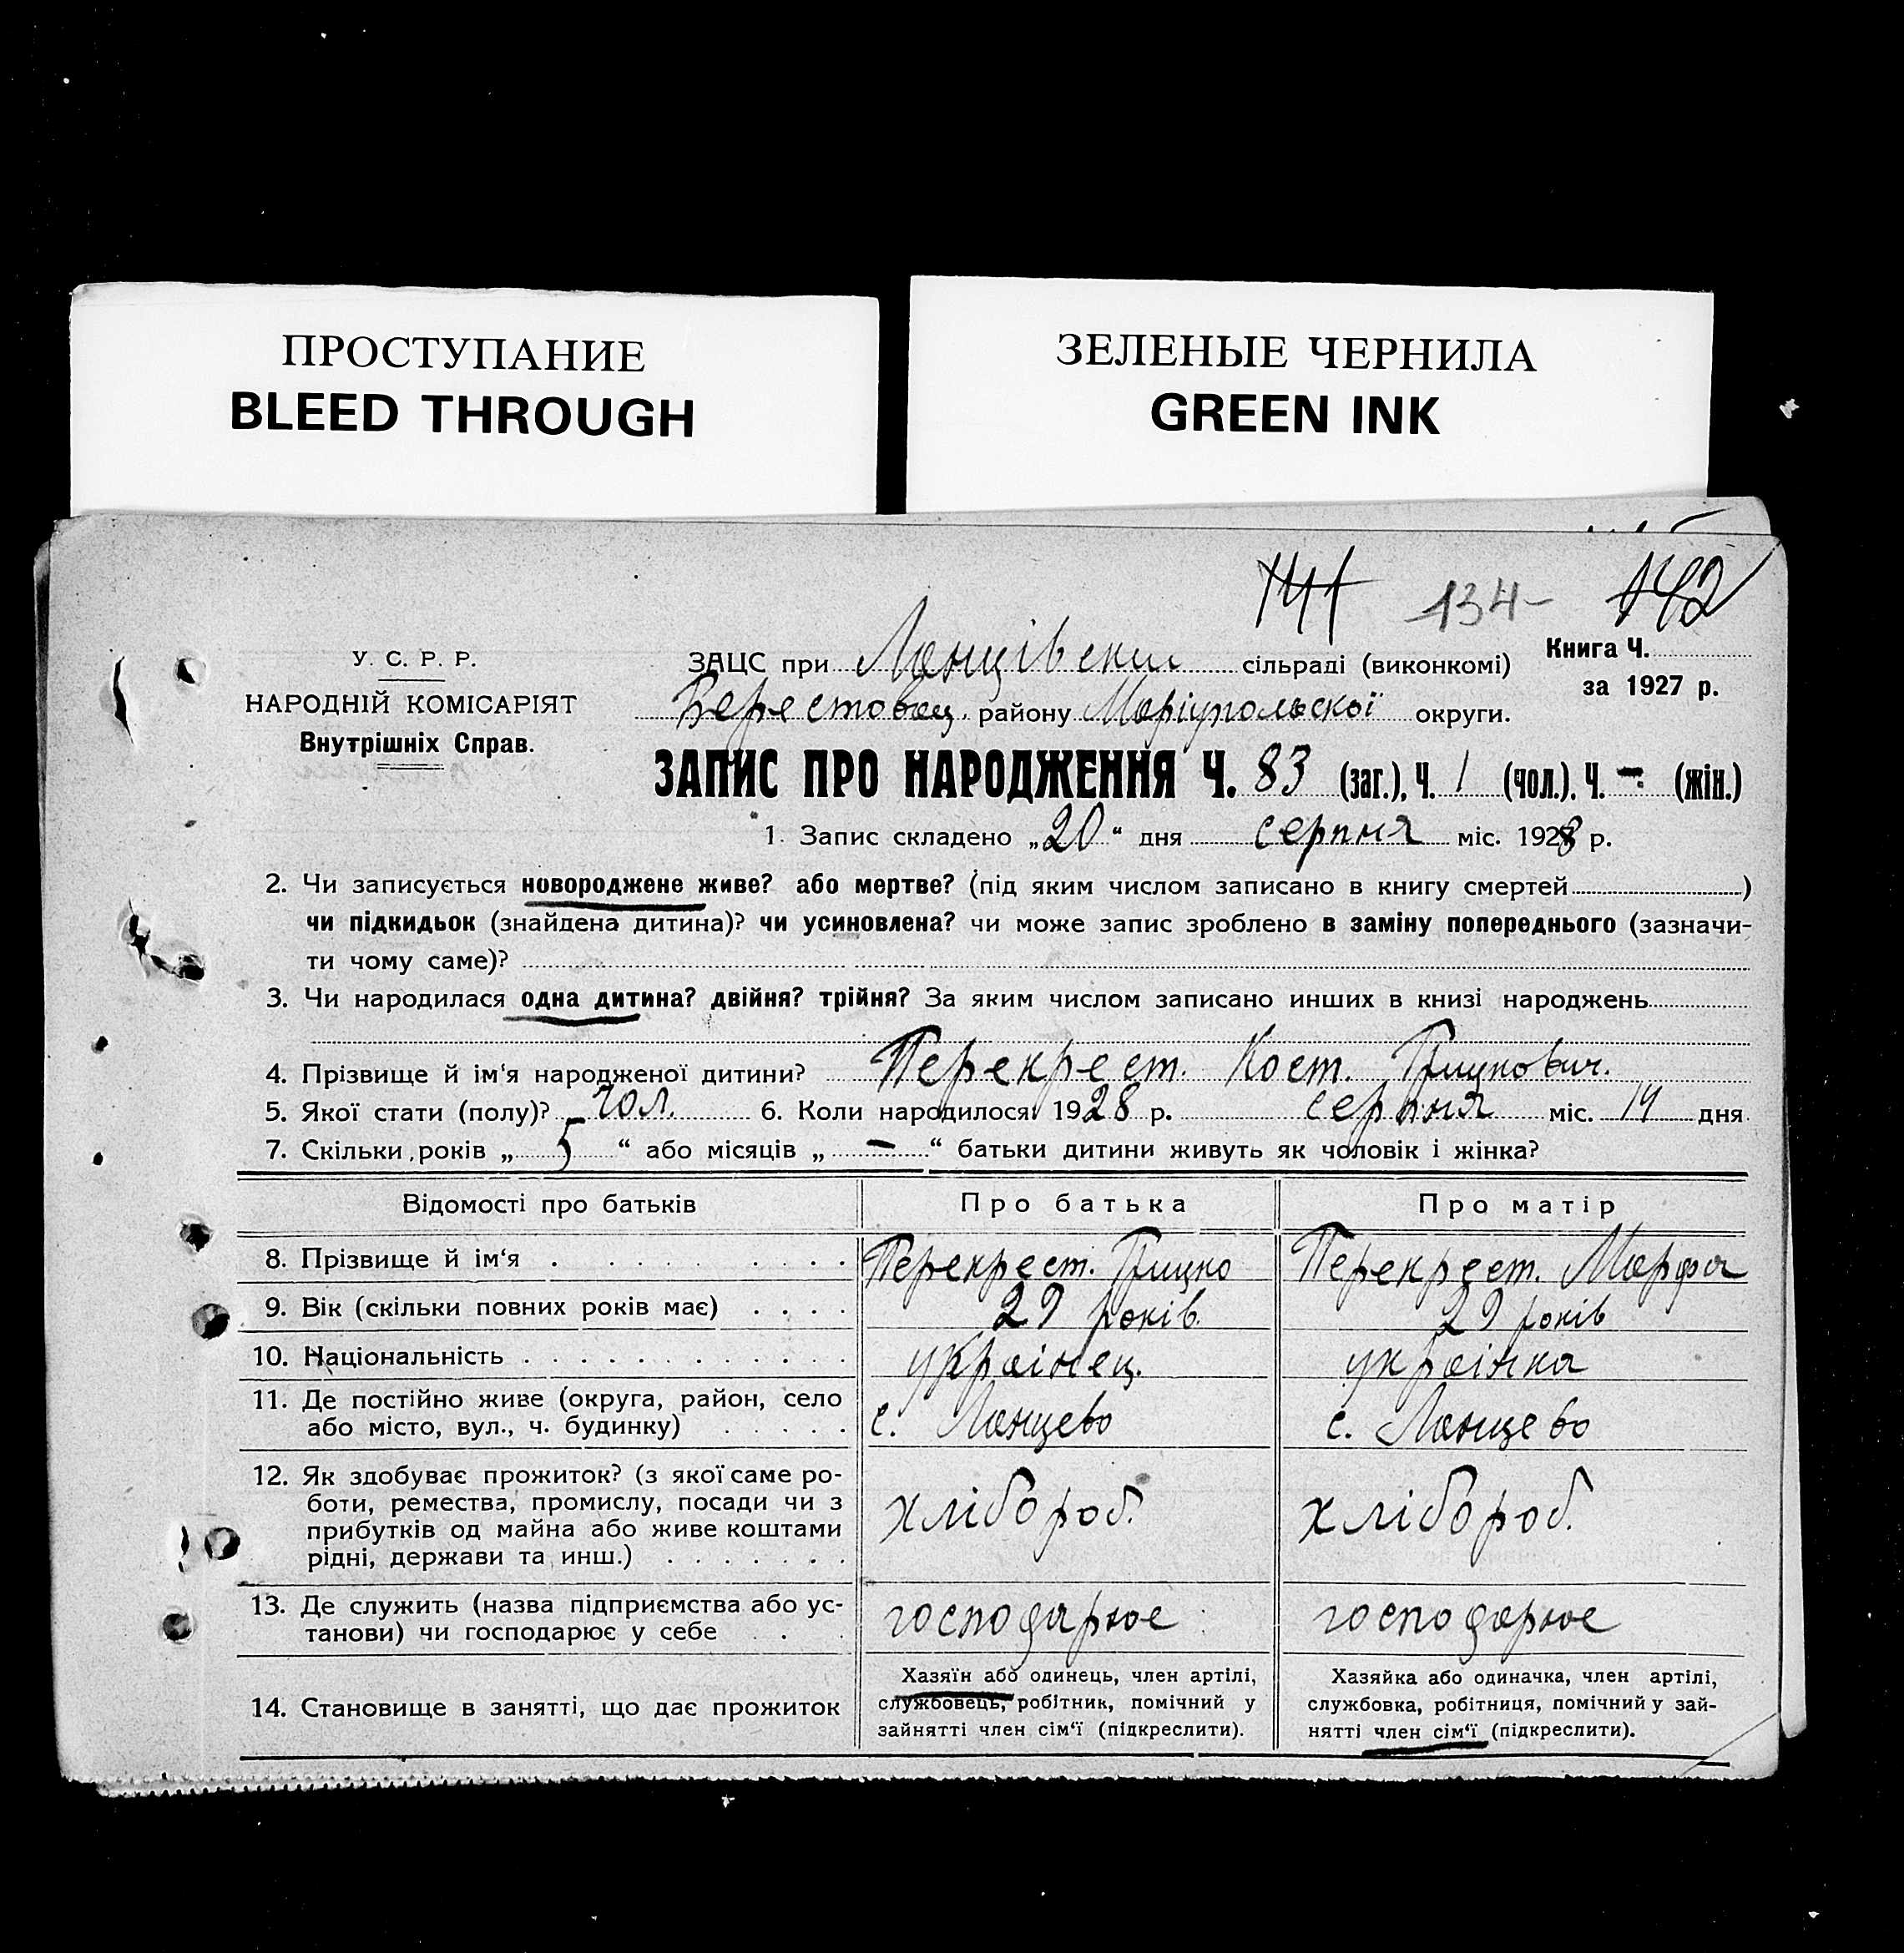 ПРОСТУПАНИЕ
BLEED THROUGH
ЗЕЛЕНЫЕ ЧЕРНИЛА
GREEN INK
141 134- 142
У. С. Р. Р.
НАРОДНІЙ КОМІСАРІЯТ
Внутрішніх Справ.
ЗАЦС при Ланцівски сільраді (виконкомі)
Книга Ч.
за 1927 р.
Берестовец. району Маріупольскої округи.
ЗАПИС ПРО НАРОДЖЕННЯ Ч. 83 (заг.), Ч. 1 (чол.). Ч. - (жін.)
1. Запис складено „20“ дня серпня міс. 1928 р.
2. Чи записується новороджене живе? або мертве? (під яким числом записано в книгу смертей )
чи підкидьок (знайдена дитина)? чи усиновлена? чи може запис зроблено в заміну попереднього (зазначи-
ти чому саме)?
3. Чи народилася одна дитина? двійня? трійня? За яким числом записано инших в книзі народжень
4. Прізвище й ім‘я народженої дитини? Перекрест. Кост. Грицкович.
5. Якої стати (полу)? чол. 6. Коли народилося: 1928 р. серпня міс. 14 дня
7. Скільки років „ 5 “ або місяців „ - “ батьки дитини живуть як чоловік і жінка?
Відомості про батьків Про батька Про матір
8. Прізвище й ім‘я . . . . . . . . Перекрест. Грицко Перекрест. Марфа
9. Вік (скільки повних років має) . . . . 29 років. 29 років
10. Національність . . . . . . . . . . . . українец. українка
11. Де постійно живе (округа, район, село
або місто, вул., ч. будинку) . . . . . с. Ланцево с. Ланцево
12. Як здобуває прожиток? (з якої саме ро-
боти, ремества, промислу, посади чи з
прибутків од майна або живе коштами
рідні, держави та инш.) . . . . . . .
хлібороб. хлібороб.
13. Де служить (назва підприємства або ус-
танови) чи господарює у себе . .
господарює господарює
14. Становище в занятті, що дає прожиток
Хазяїн або одинець, член артілі,
службовець, робітник, помічний у
зайнятті член сім‘ї (підкреслити).
Хазяйка або одиначка, член артілі,
службовка, робітниця, помічний у зай-
нятті член сім‘ї (підкреслити).